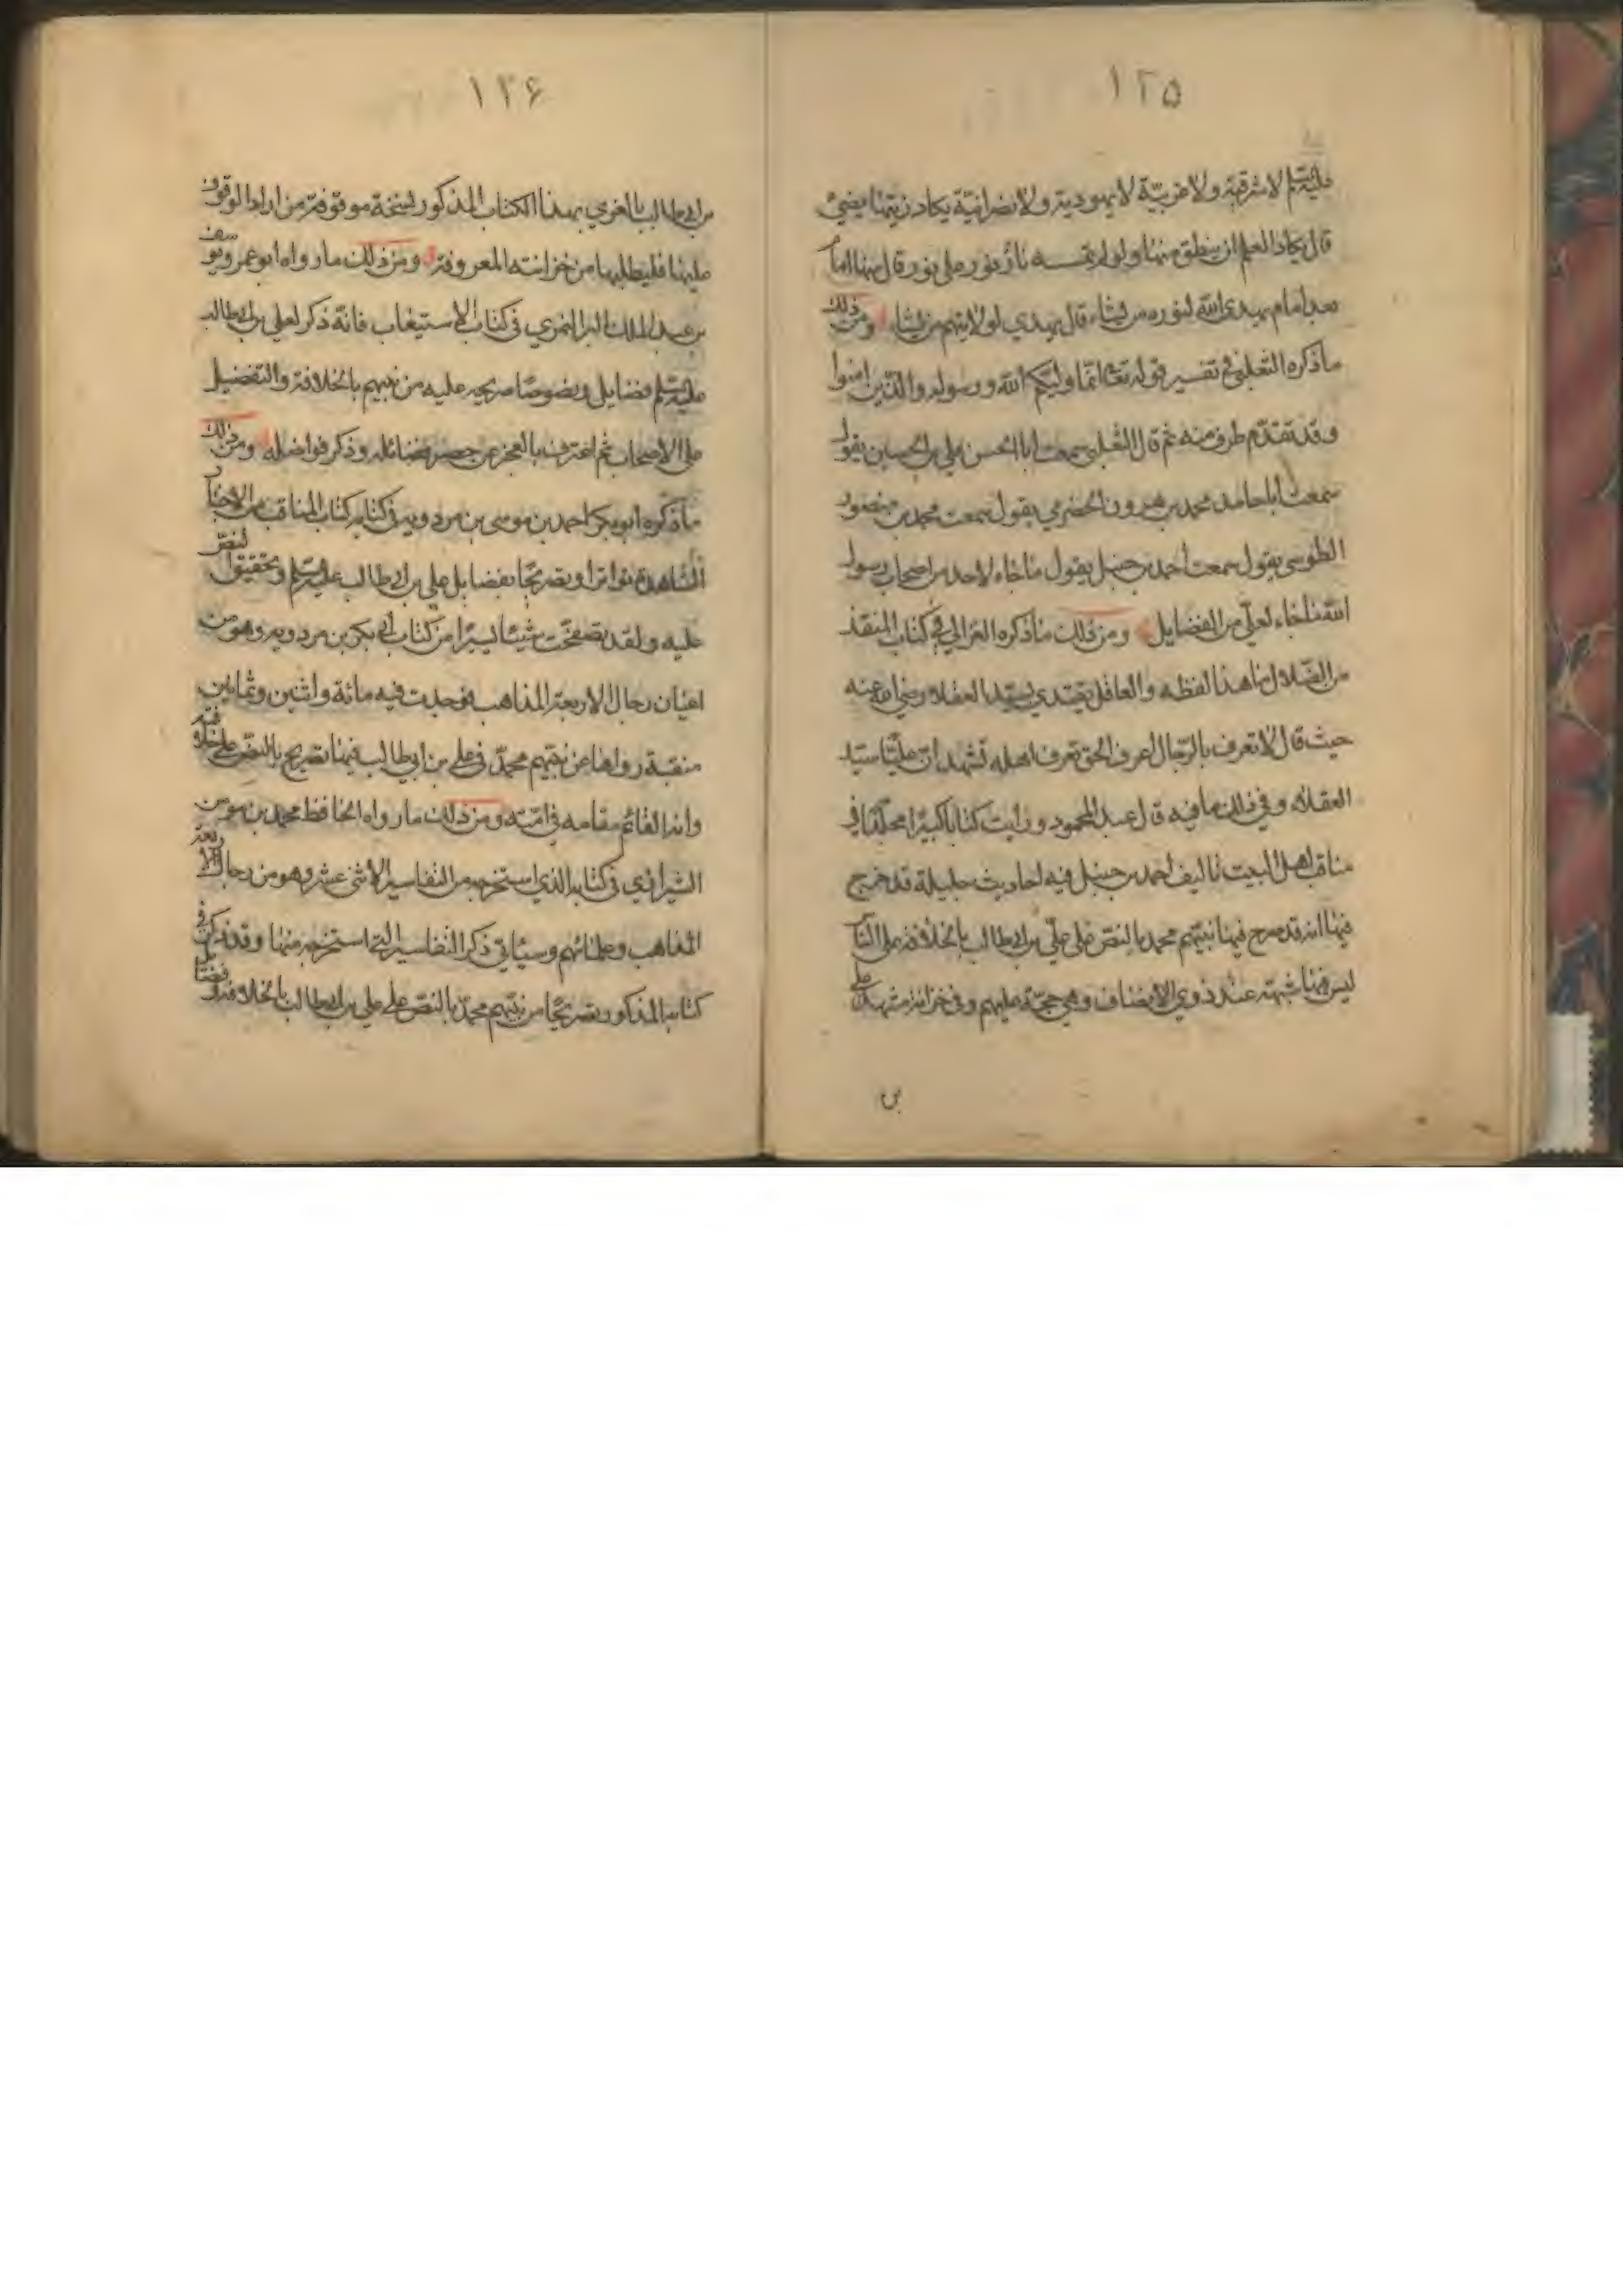 ١٢٥
عليه السلم لا شرقية ولا غربيّة لا يهودية ولا نصرانيّة يكاد زيتها يضيئ
قال يكاد العلم ان ينطق منها ولو لم تمسسه نار نور على نور قال منها امام
بعد امام يهدى الله لنوره من يشاء قال يهدي لولايتهم من يشاء ومن ذلك
ما ذكره الثعلبى فى تفسير قوله تعالى انّما وليّكم الله ورسوله والذّين امنوا
وقد تقدّم طرف منه ثم قال الثعلبى سمعت ابا الحسن على بن الحسين يقول
سمعت ابا حامد محمد بن هرون الحضرمي يقول سمعت محمد بن منصور
الطوسى يقول سمعت احمد بن حنبل يقول ما جاء لاحد من اصحاب رسول
الله ما جاء لعلى من الفضايل ومن ذلك ما ذكره الغزالي في كتاب المنقذ
من الضّلال ما هذا لفظه والعاقل يقتدي بسيّد العقلاء رضى الله عنه
حيث قال لا تعرف بالرّجال اعرف الحق تعرف اهله تشهد ان عليّا سيّد
العقلاء وفي ذلك ما فيه قال عبد المحمود ورايت كتابا كبيرا مجلّدا في
مناقب اهل البيت تاليف احمد بن حنبل فيه احاديث جليلة قد خرج
فيها انه قد صرح فيها نبيّهم محمد بالنصّ على علّي بن ابى طالب بالخلافة على الناس
ليس فيها شبهة عند ذوي الانصاف وهي حجّة عليهم وفى خزانة مشهد على
بن
١٢۶
بن ابى طالب بالغري بهذا الكتاب المذكور نسخة موقوفة من اراد الوقوف
عليها فليطلبها من خزانته المعروفة ومن ذلك ما رواه ابو عمرو يوسف
بن عبد الملك البر النمري فى كتاب الاستيعاب فانّه ذكر لعلى بن ابى طالب
عليه السلم فضايل ونصوصا صريحه عليه من نبيهم بالخلافة والتفضيل
على الاصحاب ثم اعترف بالعجز عن حصر فضائله وذكر فواضله ومن ذلك
ما ذكره ابو بكر احمد بن موسى بن مردويه فى كتابه كتاب المناقب من الاخبار
الشاهدة تواترا وتصريحًا بفضايل على بن ابى طالب عليه السلم وتحقيق النصّ
عليه ولقد تصفحّت شيئا يسيرًا من كتاب أبى بكر بن مردويه وهو من
اعيان رجال الاربعة المذاهب فوجدت فيه مائة واثنين وثمانين
منقبة رواها عن نبيّهم محمدّ فى على بن ابي طالب فيها تصريح بالنصّ على خلافته
وانه القائم مقامه فى امّته ومن ذلك ما رواه الحافظ محمد بن مومن
الشيرازي فى كتابه الذي استخرجه من التفاسير الاثنى عشر وهو من رجال الاربعة
المذاهب وعلمائهم وسياتى ذكر التفاسير التى استخرجه منها وقد ذكر فى
كتابه المذكور تصريحًا من نبيّهم محمدّ بالنصّ على على بن ابى طالب بالخلافة